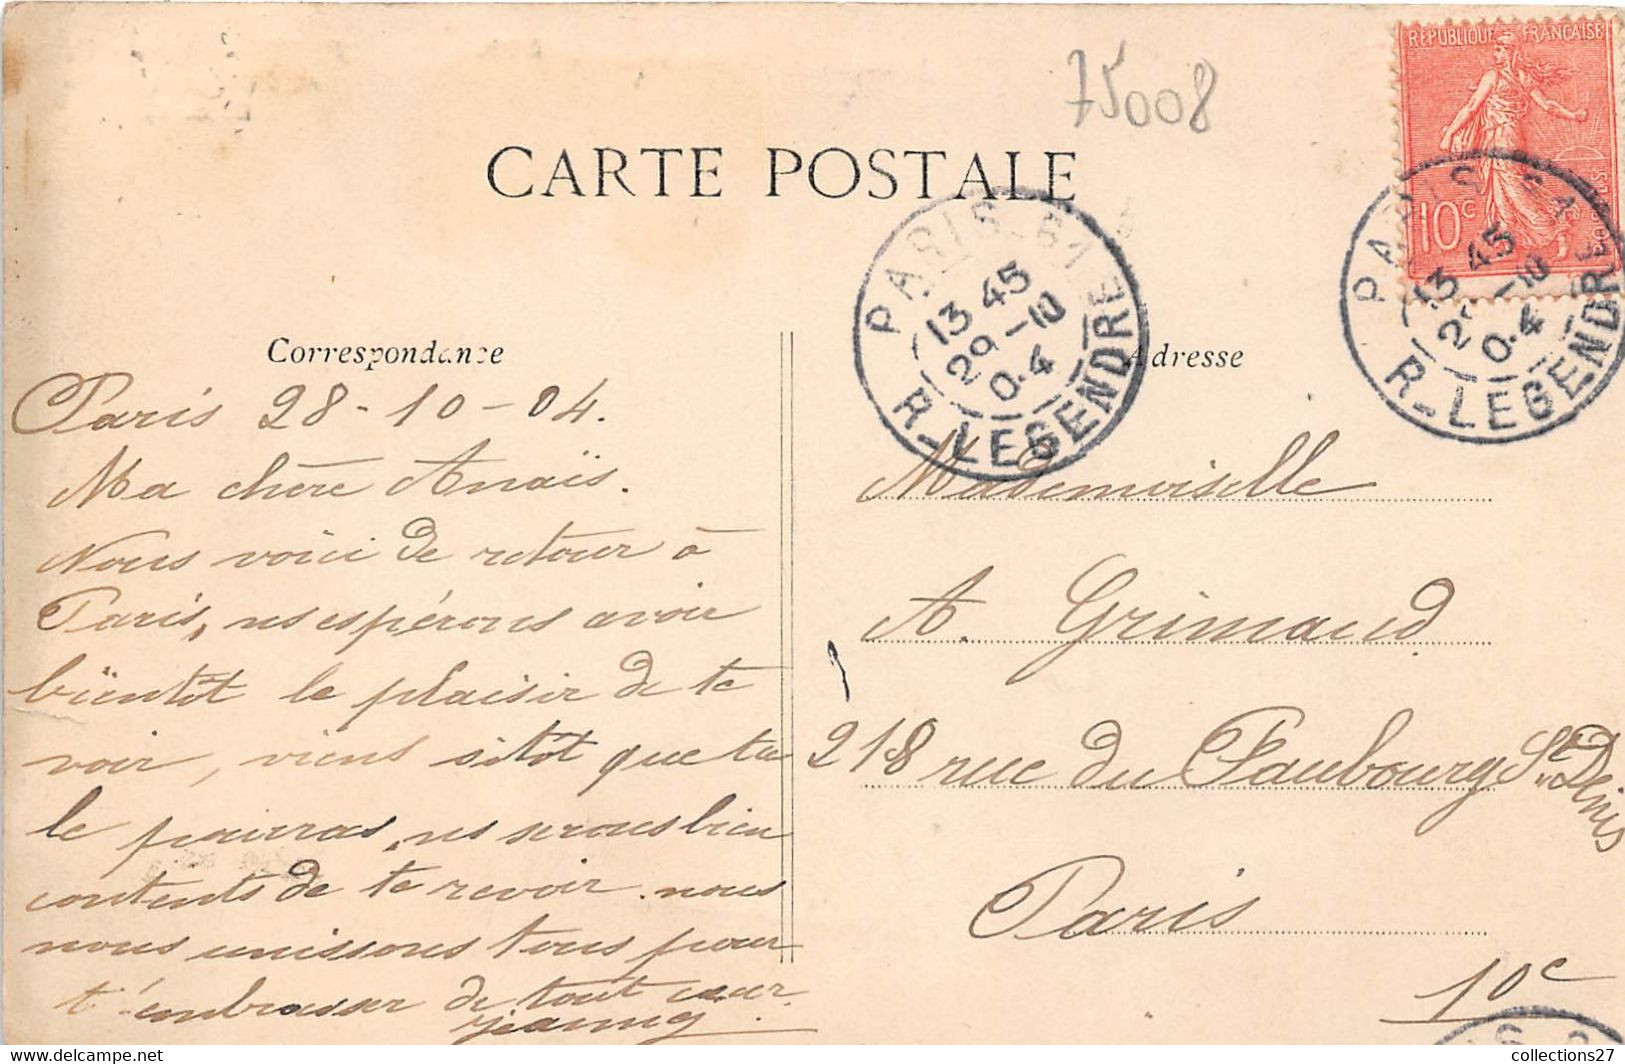 75008
REPUBLIQUE FRANÇAISE
10c
CARTE POSTALE
PARIS - 61
13 45
29 - 10
04
R. LEGENDRE
PARIS 61
13 45
29 - 10
04
R. LEGENDRE
Correspondance
Adresse
Paris 28-10-04.
Ma chère Anaïs.
Nous voici de retour à
Paris, ns espérons avoir
bientôt le plaisir de te
voir, viens sitôt que tu
le pourras, ns serons bien
contents de te revoir. nous
nous unissons tous pour
t'embrasser de tout cœur.
Mademoiselle
A. Grimaud
218 rue du Faubourg St Denis
Paris
10c
collections27